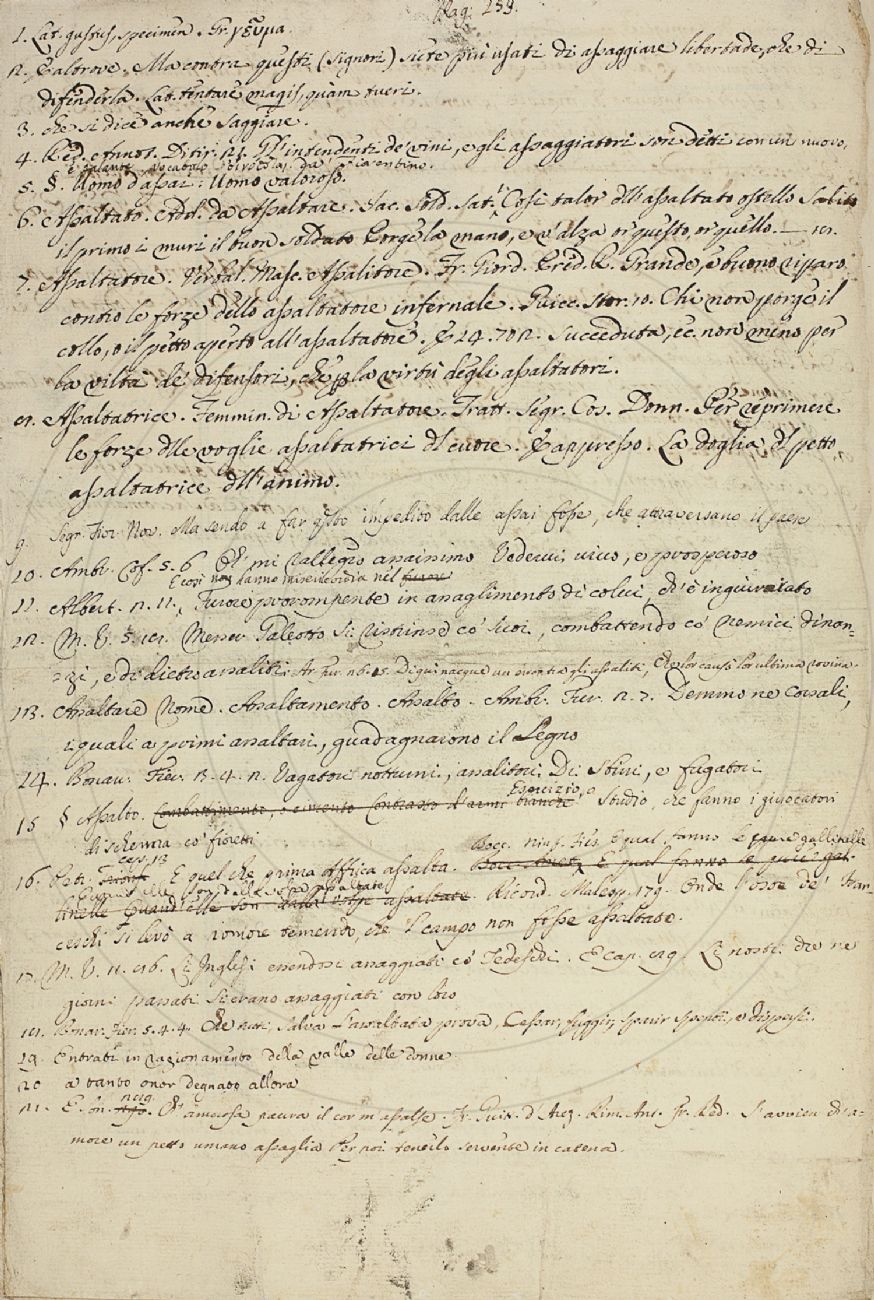 Pag. 159.
1. Lat. gustus, specimen. Gr. γεῦμα.
2. E altrove. Ma contra questi (Signori) siete più usati di assaggiare libertade, che di
difenderla. Lat. tentare magis, quam tueri.
3. che si dice anche Saggiare.
4. Red. Annot. Ditir. 121. Gl'intendenti de' vini, e gli assaggiatori son detti con un nuovo,
e galante vocabolo piacentino.
5. §. Uomo d'assai: Uomo valoroso.
6. Assaltato. Add. da Assaltare. Sac. Sold. Sat. Così talor dell'assaltato ostello Salito
il primo i muri il buon soldato Porge la mano, e v'alza or questo, or quello.
7. Assaltatore. Verbal. Masc. Assalitore. Fr. Giord. Pred. R. Grande, e buono riparo
contro le forze dello assaltatore infernale. Guicc. Stor. 10. Chi non porge il
collo, o il petto aperto all'assaltatore. E 14. 702. Succeduta, ec. non meno per
la viltà de' difensori, che per la virtù degli assaltatori.
8. Assaltatrice. Femmin. di Assaltatore. Tratt. Segr. Cos. Donn. Per reprimere
le forze delle voglie assaltatrici del cuore. E appresso. La doglia del petto
assaltatrice dell'animo.
9. Segr. Fior. Nov. Ma sendo a far questo impedito dalle assai fosse, che attraversano il paese
10. Ambr. Cof. 5. 6. Et mi rallegro assaissimo Vedervi vivo, e prosperoso
E così non hanno misericordia nel furore
11. Albert. 2. 11. Furore prorompente in assaglimento di colui, ch'è ingiuriato
12. M. V. 5. 81. Messer Galeotto si ristrinse co' suoi, combattendo co' nemici dinan=
=zi, e di dietro assaliti. Ar. Fur. 26. 15. Di qui nacque un errore tra gli assaliti, Che lor causò lor ultima rovina.
13. Assaltare Nome. Assaltamento. Assalto. Ambr. Fur. 2. 7. Demmo ne' Corsali,
i quali a' primi assaltari, guadagnarono il Legno
14. Bonar. Fier. 3. 4. 2. Vagatori notturni, assalitori Di Sbirri, e fugatori
Esercizio, o
15 § Assalto. Combattimento, o cimento Contrasto d'armi bianche Studio, che fanno i giuocatori
di scherma co' fioretti
cap. 13 Bocc. Ninf. Fies. E qual fanno le gallinelle
16. Petr. E quel che prima Affrica assalta.
Ricord. Malesp. 179. Onde l'oste de' Fran-
ceschi si levò a romore temendo, che 'l campo non fosse assaltato.
17. M. V. 11. 816. Li Inglesi essendosi assaggiati co' Tedeschi. E cap. 89. Li nostri che ne'
giorni passati si erano assaggiati con loro
18. Bonar. Fier. 5. 4. 4. Che nati, salva l'assaltata prova, Cessar, fuggir, sparir spenti, e dispersi.
19. Entrati in ragionamento della valle delle donne
20 a tanto onor degnato allora
21. E. in. Ch'amorosa paura il cor m'assalse. Fr. Guitt. d'Arez. Rim. Ant. Fr. Red. S'avvien ch'a=
more un petto umano assaglia Per poi tenerlo servente in catena.